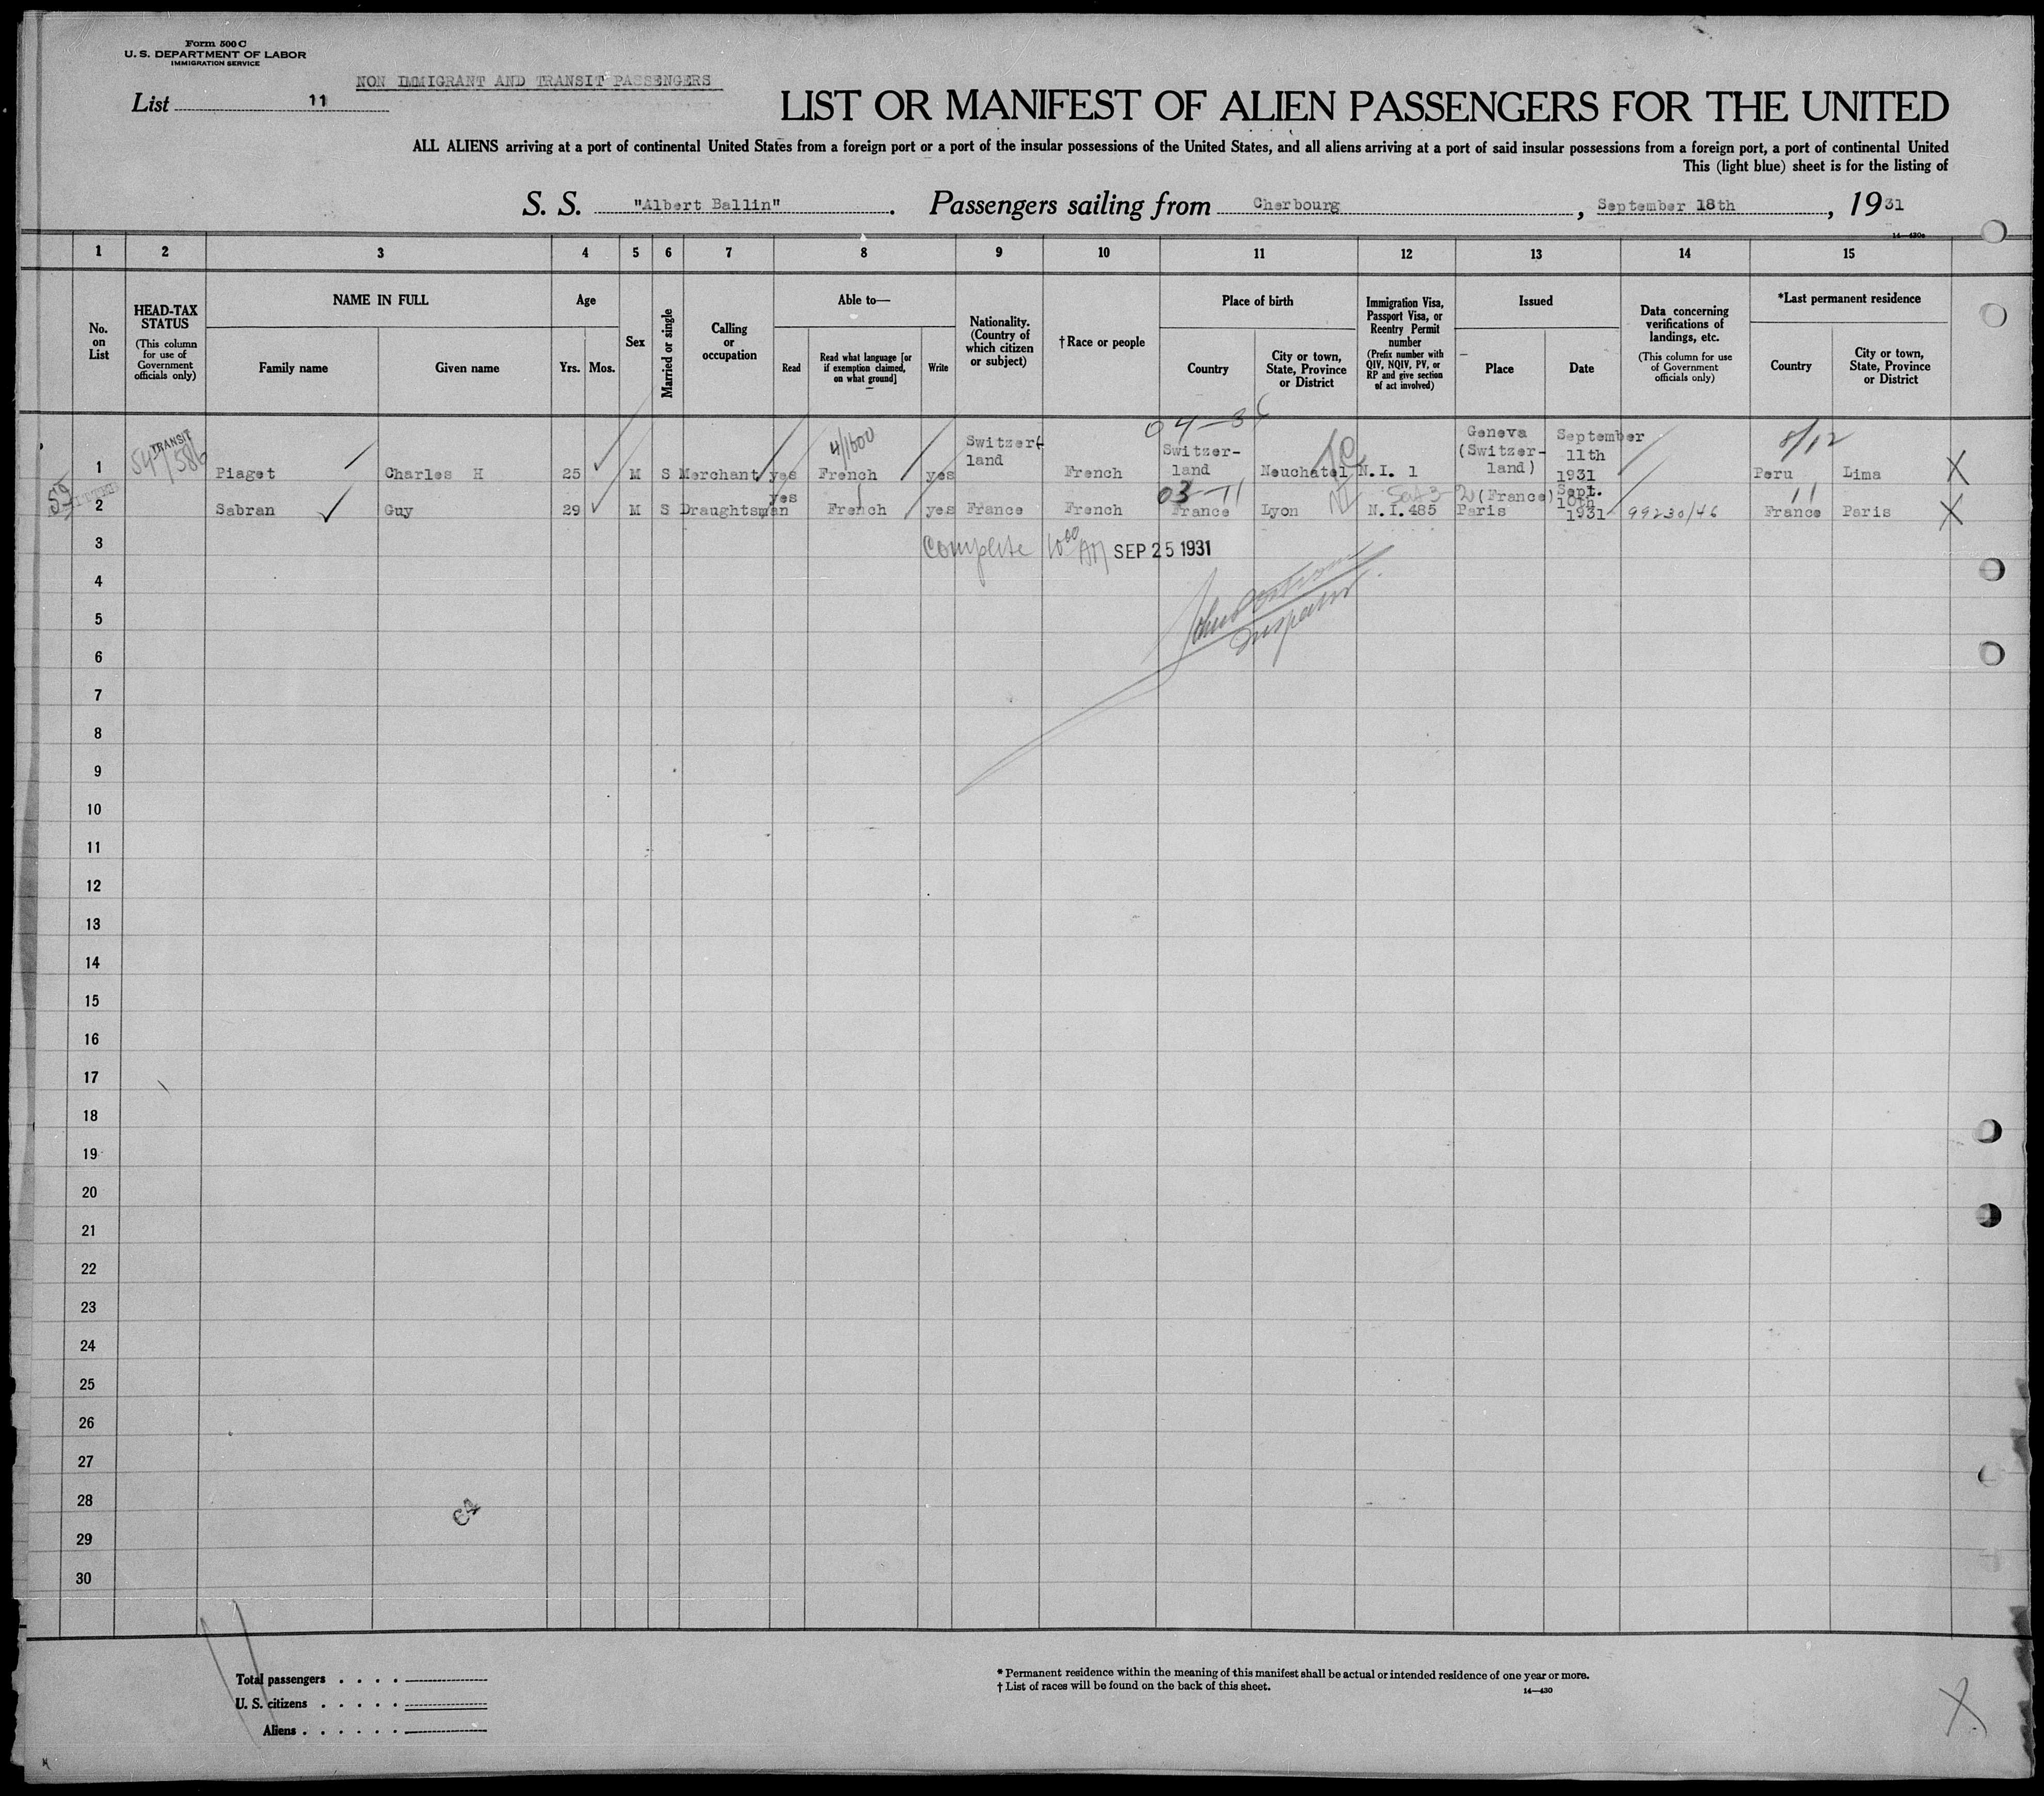 Form 500 C
U. S. DEPARTMENT OF LABOR
IMMIGRATION SERVICE
NON IMMIGRANT AND TRANSIT PASSENGERS
List 11
LIST OR MANIFEST OF ALIEN PASSENGERS FOR THE UNITED
ALL ALIENS arriving at a port of continental United States from a foreign port or a port of the insular possessions of the United States, and all aliens arriving at a port of said insular possessions from a foreign port, a port of continental United
This (light blue) sheet is for the listing of
S. S. "Albert Ballin". Passengers sailing from Cherbourg, September 18th, 1931
14—430a
1 2 3 4 5 6 7 8 9 10 11 12 13 14 15
No. on List
HEAD-TAX STATUS
(This column for use of Government officials only)
NAME IN FULL
Family name Given name
Age
Yrs. Mos.
Sex
Married or single
Calling or occupation
Able to—
Read
Read what language [or if exemption claimed, on what ground]
Write
Nationality. (Country of which citizen or subject)
†Race or people
Place of birth
Country
City or town, State, Province or District
Immigration Visa, Passport Visa, or Reentry Permit number
(Prefix number with QIV, NQIV, PV, or RP and give section of act involved)
Issued
Place Date
Data concerning verifications of landings, etc.
(This column for use of Government officials only)
*Last permanent residence
Country
City or town, State, Province or District
04-3
1 TRANSIT Piaget Charles H 25 M S Merchant yes 4/1600 French yes Switzerland French Switzer-land Neuchatel N.I. 1 Geneva (Switzer-land) September 11th 1931 8/12 Peru Lima X
59 2 Sabran Guy 29 M S Draughtsman yes French yes France French 03-11 France Lyon N.I.485 (France) Paris Sept. 10th 1931 99230/46 11 France Paris X
3 Complete 10 00 AM SEP 25 1931
4
5 John
Inspector
6
7
8
9
10
11
12
13
14
15
16
17
18
19
20
21
22
23
24
25
26
27
28
29
30
Total passengers
U. S. citizens
Aliens
* Permanent residence within the meaning of this manifest shall be actual or intended residence of one year or more.
† List of races will be found on the back of this sheet.
14—430
X